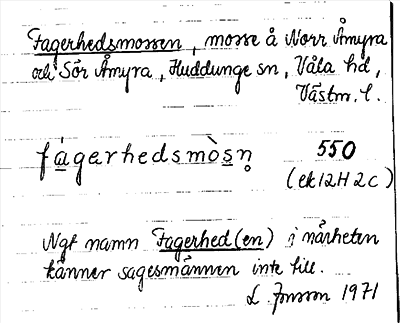 Fagerhedsmossen, mosse å Norr Åmyra
och Sör Åmyra, Huddunge sn, Våla hd,
Västm. l.
fágerhedsmòsn̥ 550
(ek 12H 2c)
Ngt namn Fagerhed(en) i närheten
känner sagesmannen inte till.
L. Jonsson 1971